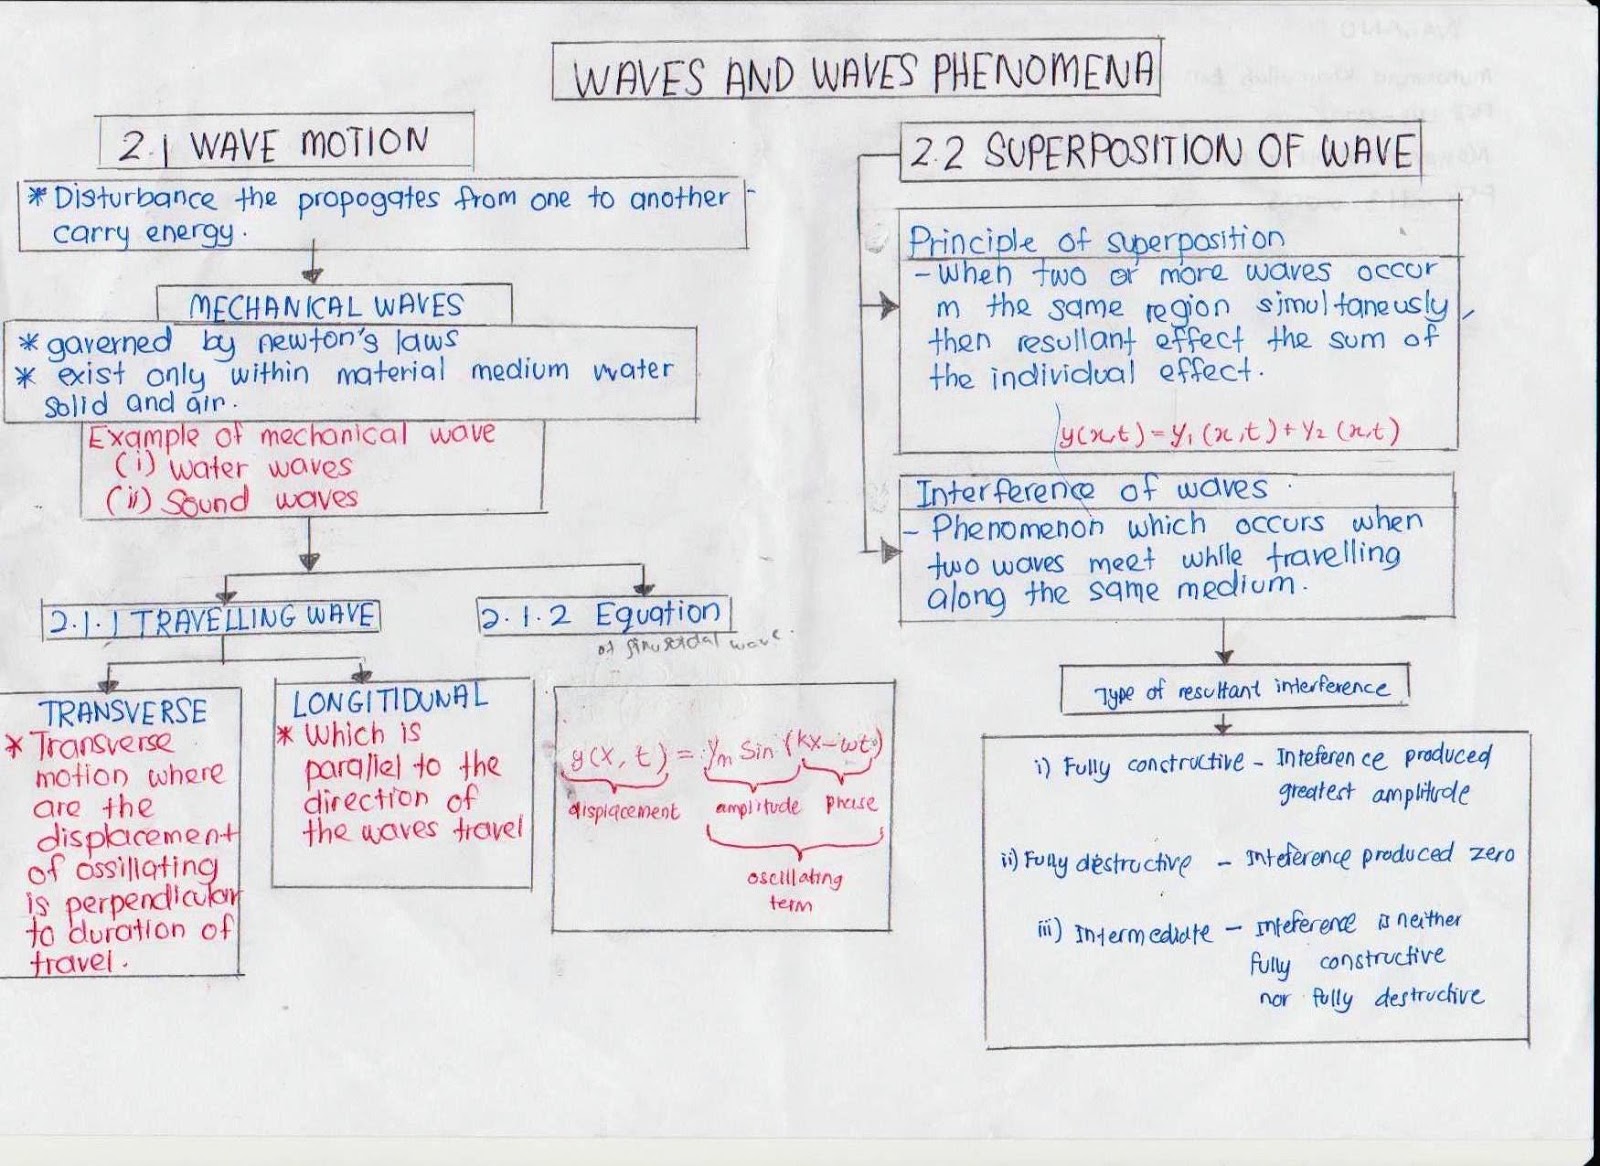 WAVES AND WAVES PHENOMENA
2.1 WAVE MOTION
* Disturbance the propogates from one to another
carry energy.
MECHANICAL WAVES
* gaverned by newton's laws
* exist only within material medium water
solid and air.
Example of mechanical wave
(i) Water waves
(ii) Sound waves
2.1.1 TRAVELLING WAVE
2.1.2 Equation
of sinusoidal wave.
TRANSVERSE
* Transverse
motion where
are the
displacement
of ossillating
is perpendicular
to duration of
travel.
LONGITIDUNAL
* Which is
parallel to the
direction of
the waves travel
y(x, t) = ym sin (kx - wt)
displacement amplitude phase
oscillating
term
2.2 SUPERPOSITION OF WAVE
Principle of superposition
- When two or more waves occur
in the same region simultaneusly,
then resullant effect the sum of
the individual effect.
y(x,t) = y1 (x,t) + y2 (x,t)
Interference of waves
- Phenomenon which occurs when
two waves meet while travelling
along the same medium.
Type of resultant interference
i) Fully constructive - Inteference produced
greatest amplitude
ii) Fully destructive - Inteference produced zero
iii) Intermediate - Inteference is neither
fully constructive
nor fully destructive